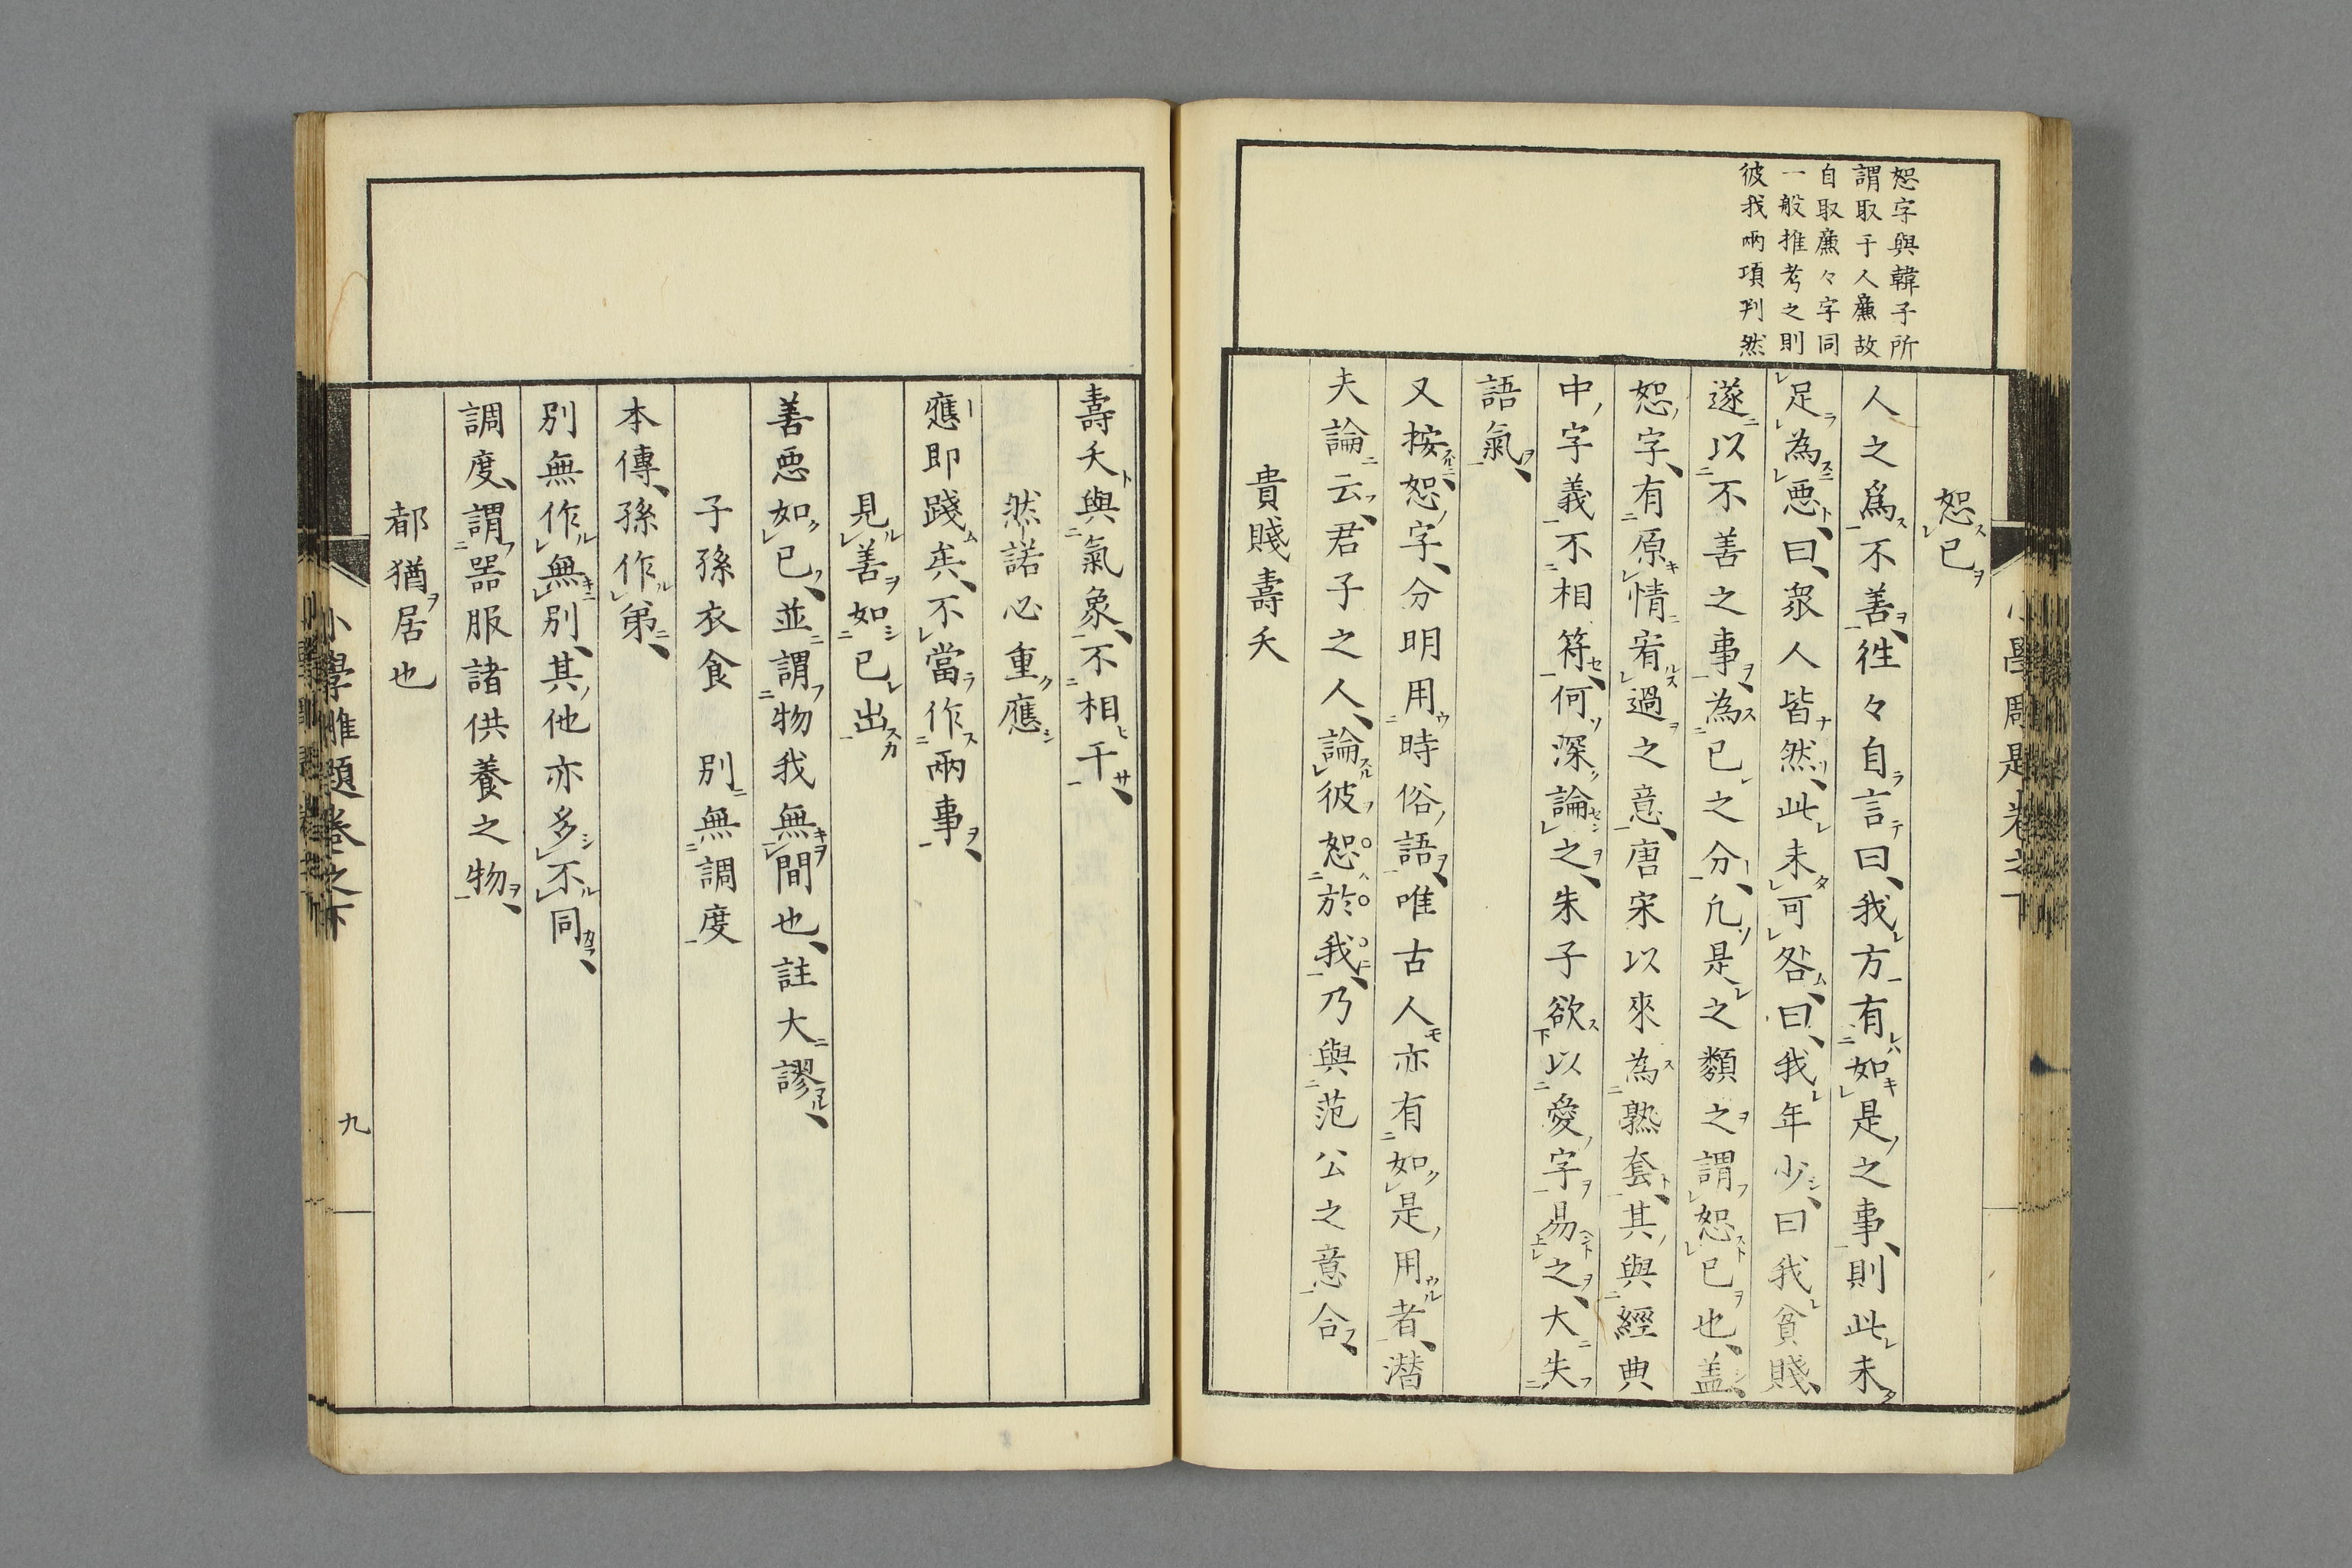 恕字與韓子所
謂取于人廉故
自取廉々字同
一般推考之則
彼我兩項判然
恕已
人之爲不善徃々自言曰我方有如是之事則此未
足為惡曰衆人皆然此未可咎曰我年少曰我貧賤
遂以不善之事為已之分凢是之類之謂恕已也盖
恕字有原情宥過之意唐宋以來為熟套其與經典
中字義不相符何深論之朱子欲以愛字易之大失
語氣
又按恕字分明用時俗語唯古人亦有如是用者潜
夫論云君子之人論彼恕於我乃與范公之意合
貴賤壽夭
壽夭與氣象不相干
然諾必重應
應即踐矣不當作兩事
見善如已出
善惡如已並謂物我無間也註大謬
子孫衣食 別無調度
本傳孫作弟
別無作無別其他亦多不同
調度謂器服諸供養之物
都猶居也
小學雕題卷之下
九